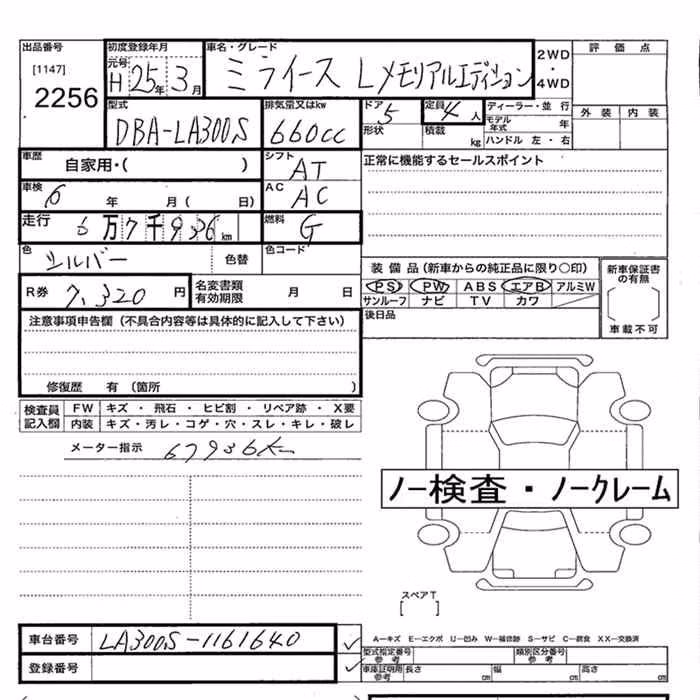 出品番号 初度登録年月 車名・グレード 2WD・4WD 評価点
[1147] 元号 H 25年 3月 ミライース Lメモリアルエディション
2256
型式 排気量又はkw ドア 5 定員 4人 ディーラー・並行 外装 内装
DBA-LA300S 660cc 形状 積載 kg モデル年式 年
ハンドル 左・右
車歴 自家用・( ) シフト AT 正常に機能するセールスポイント
車検 6 年 月( 日) AC AC
走行 6万7千936km 燃料 G
色 シルバー 色替 色コード
装備品(新車からの純正品に限り○印) 新車保証書の有無
R券 7,320円 名変書類有効期限 月 日 PS PW ABS エアB アルミW
サンルーフ ナビ TV カワ
[ ]
注意事項申告欄(不具合内容等は具体的に記入して下さい) 後日品 車載不可
修復歴 有(箇所 )
検査員記入欄 FW キズ・飛石・ヒビ割・リペア跡・X要
内装 キズ・汚レ・コゲ・穴・スレ・キレ・破レ
メーター指示 67936K
ノー検査・ノークレーム
スペアT
[ ]
車台番号 LA300S-1161640
A-キズ E-エクボ U-凹み W-補修跡 S-サビ C-腐食 XX-交換済
型式指定番号 参考 類別区分番号 参考
登録番号 車庫証明用 参考 長さ cm 幅 cm 高さ cm